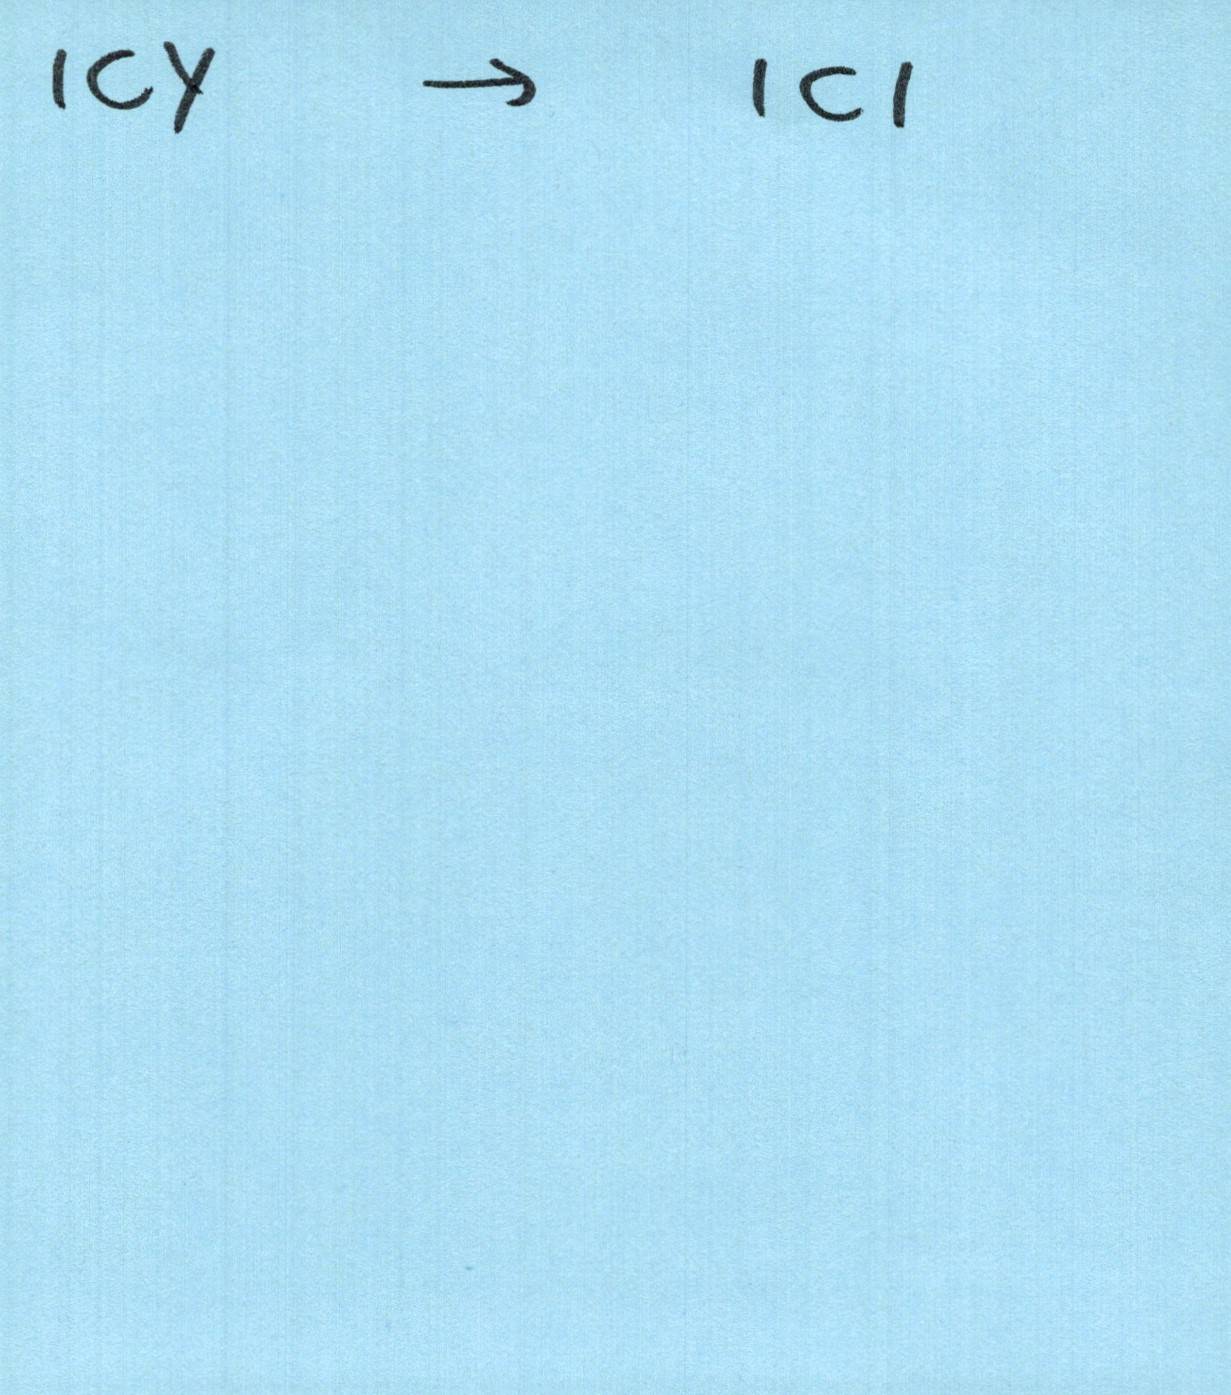 ICY → ICI